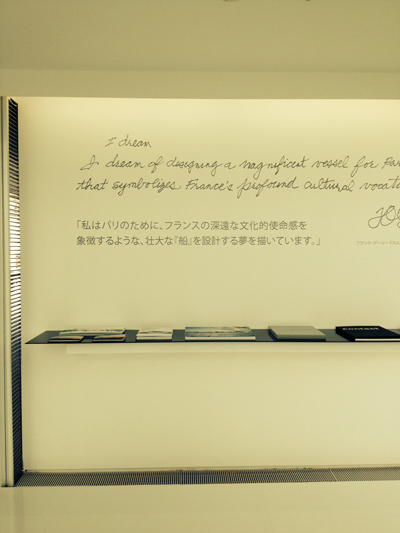 I dream
I dream of designing a magnificent vessel for
that symbolizes France's profound cultural
「私はパリのために、フランスの深遠な文化的使命感を
象徴するような、壮大な『船』を設計する夢を描いています。」
contact